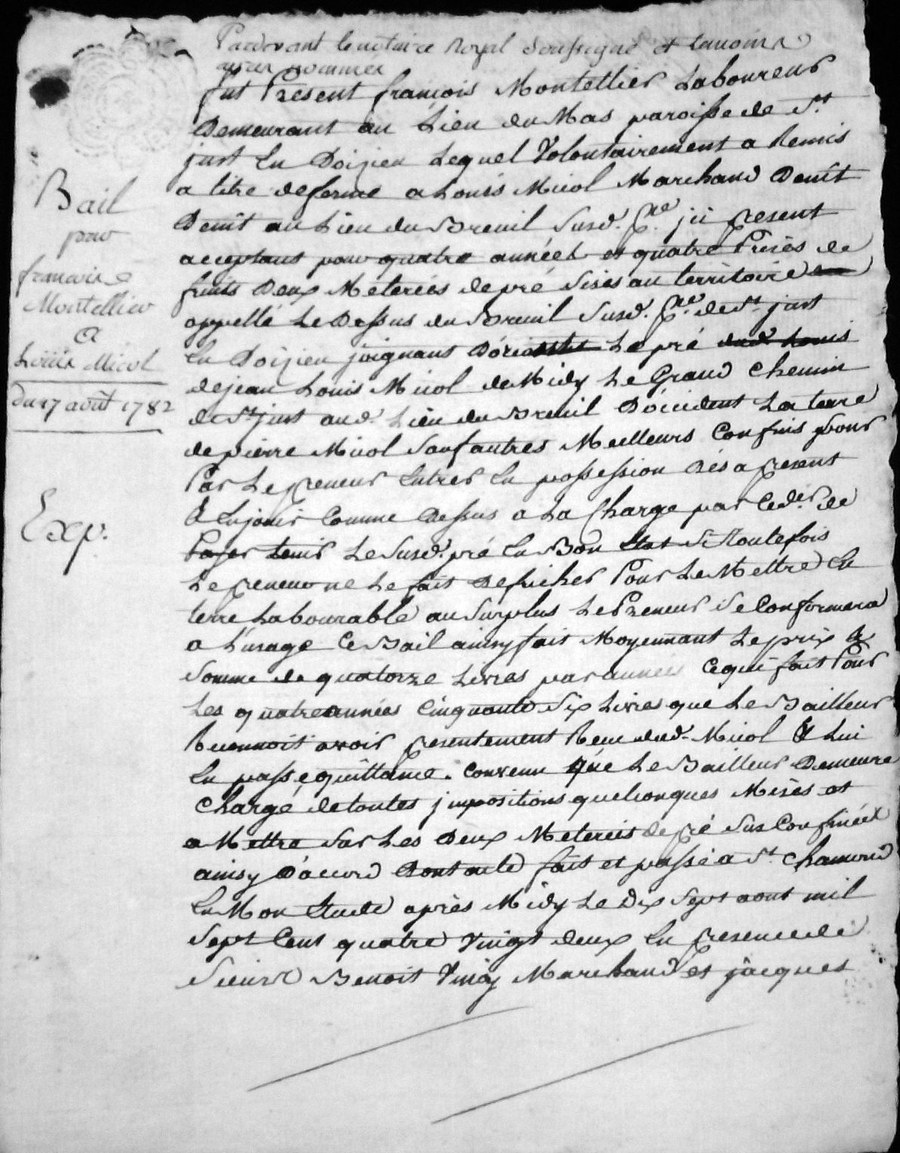 Pardevant le notaire Royal soussigné et temoins
apres nommés
fut Present françois Montellier Laboureur
Demeurant au Lieu du Mas paroisse de St
just En Doizieu Lequel Volontairement a Remis
a titre de ferme a Louis Micol Marchand Demt
Demt au Lieu du Breuil Susd. Pse. ici present
acceptant pour quatre années et quatre Prises de
fruits Deux Meterées de pré Sises au territoire
appellé Le Dessus du Breuil Susd. Pse. de St. just
En Doizieu joignant D'orient Le pré
de jean Louis Micol de Midy Le Grand Chemin
de St just aud. Lieu du Breuil D'occident La terre
de pierre Micol Sauf autres Meilleurs Confins pour
Par Le Preneur Entrer En possession Dès a present
& En jouir Comme Dessus a La Charge par Ced. der de
tenir Le Susd. pré En Bon Etat Si toutefois
Le preneur ne Le fait Defricher Pour Le Mettre En
terre Labourable au Surplus Le Preneur Se Conformera
a L'usage Ce Bail ainsy fait Moyennant Le prix &
Somme de quatorze Livres par années Ce qui fait Pour
Les quatre années Cinquante Six Livres que Le Bailleur
Reconnoit avoir presentement Recu dud. Micol & Lui
En passe quittance. Convenu que Le Bailleur Demeure
Chargé de toutes jmpositions quelconques Mises et
a Mettre Sur Les Deux Meterées de pré Sus Confinées
ainsy D'accord Dont acte fait et passé a St. Chamond
En Mon Etude après Midy Le dix Sept aout mil
Sept Cent quatre Vingt deux En presence de
Sieurs Benoit Vinay Marchand et jacques
Bail
pour
françois
Montellier
a
Louis Micol
du 17 août 1782
Exp.